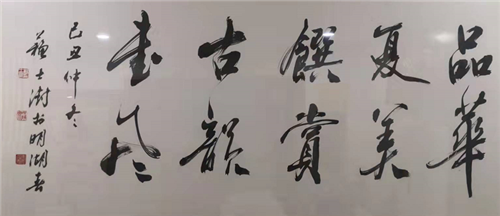 品華
夏美
饌賞
古韻
書風
己丑仲冬
蘇士澍於明湖春